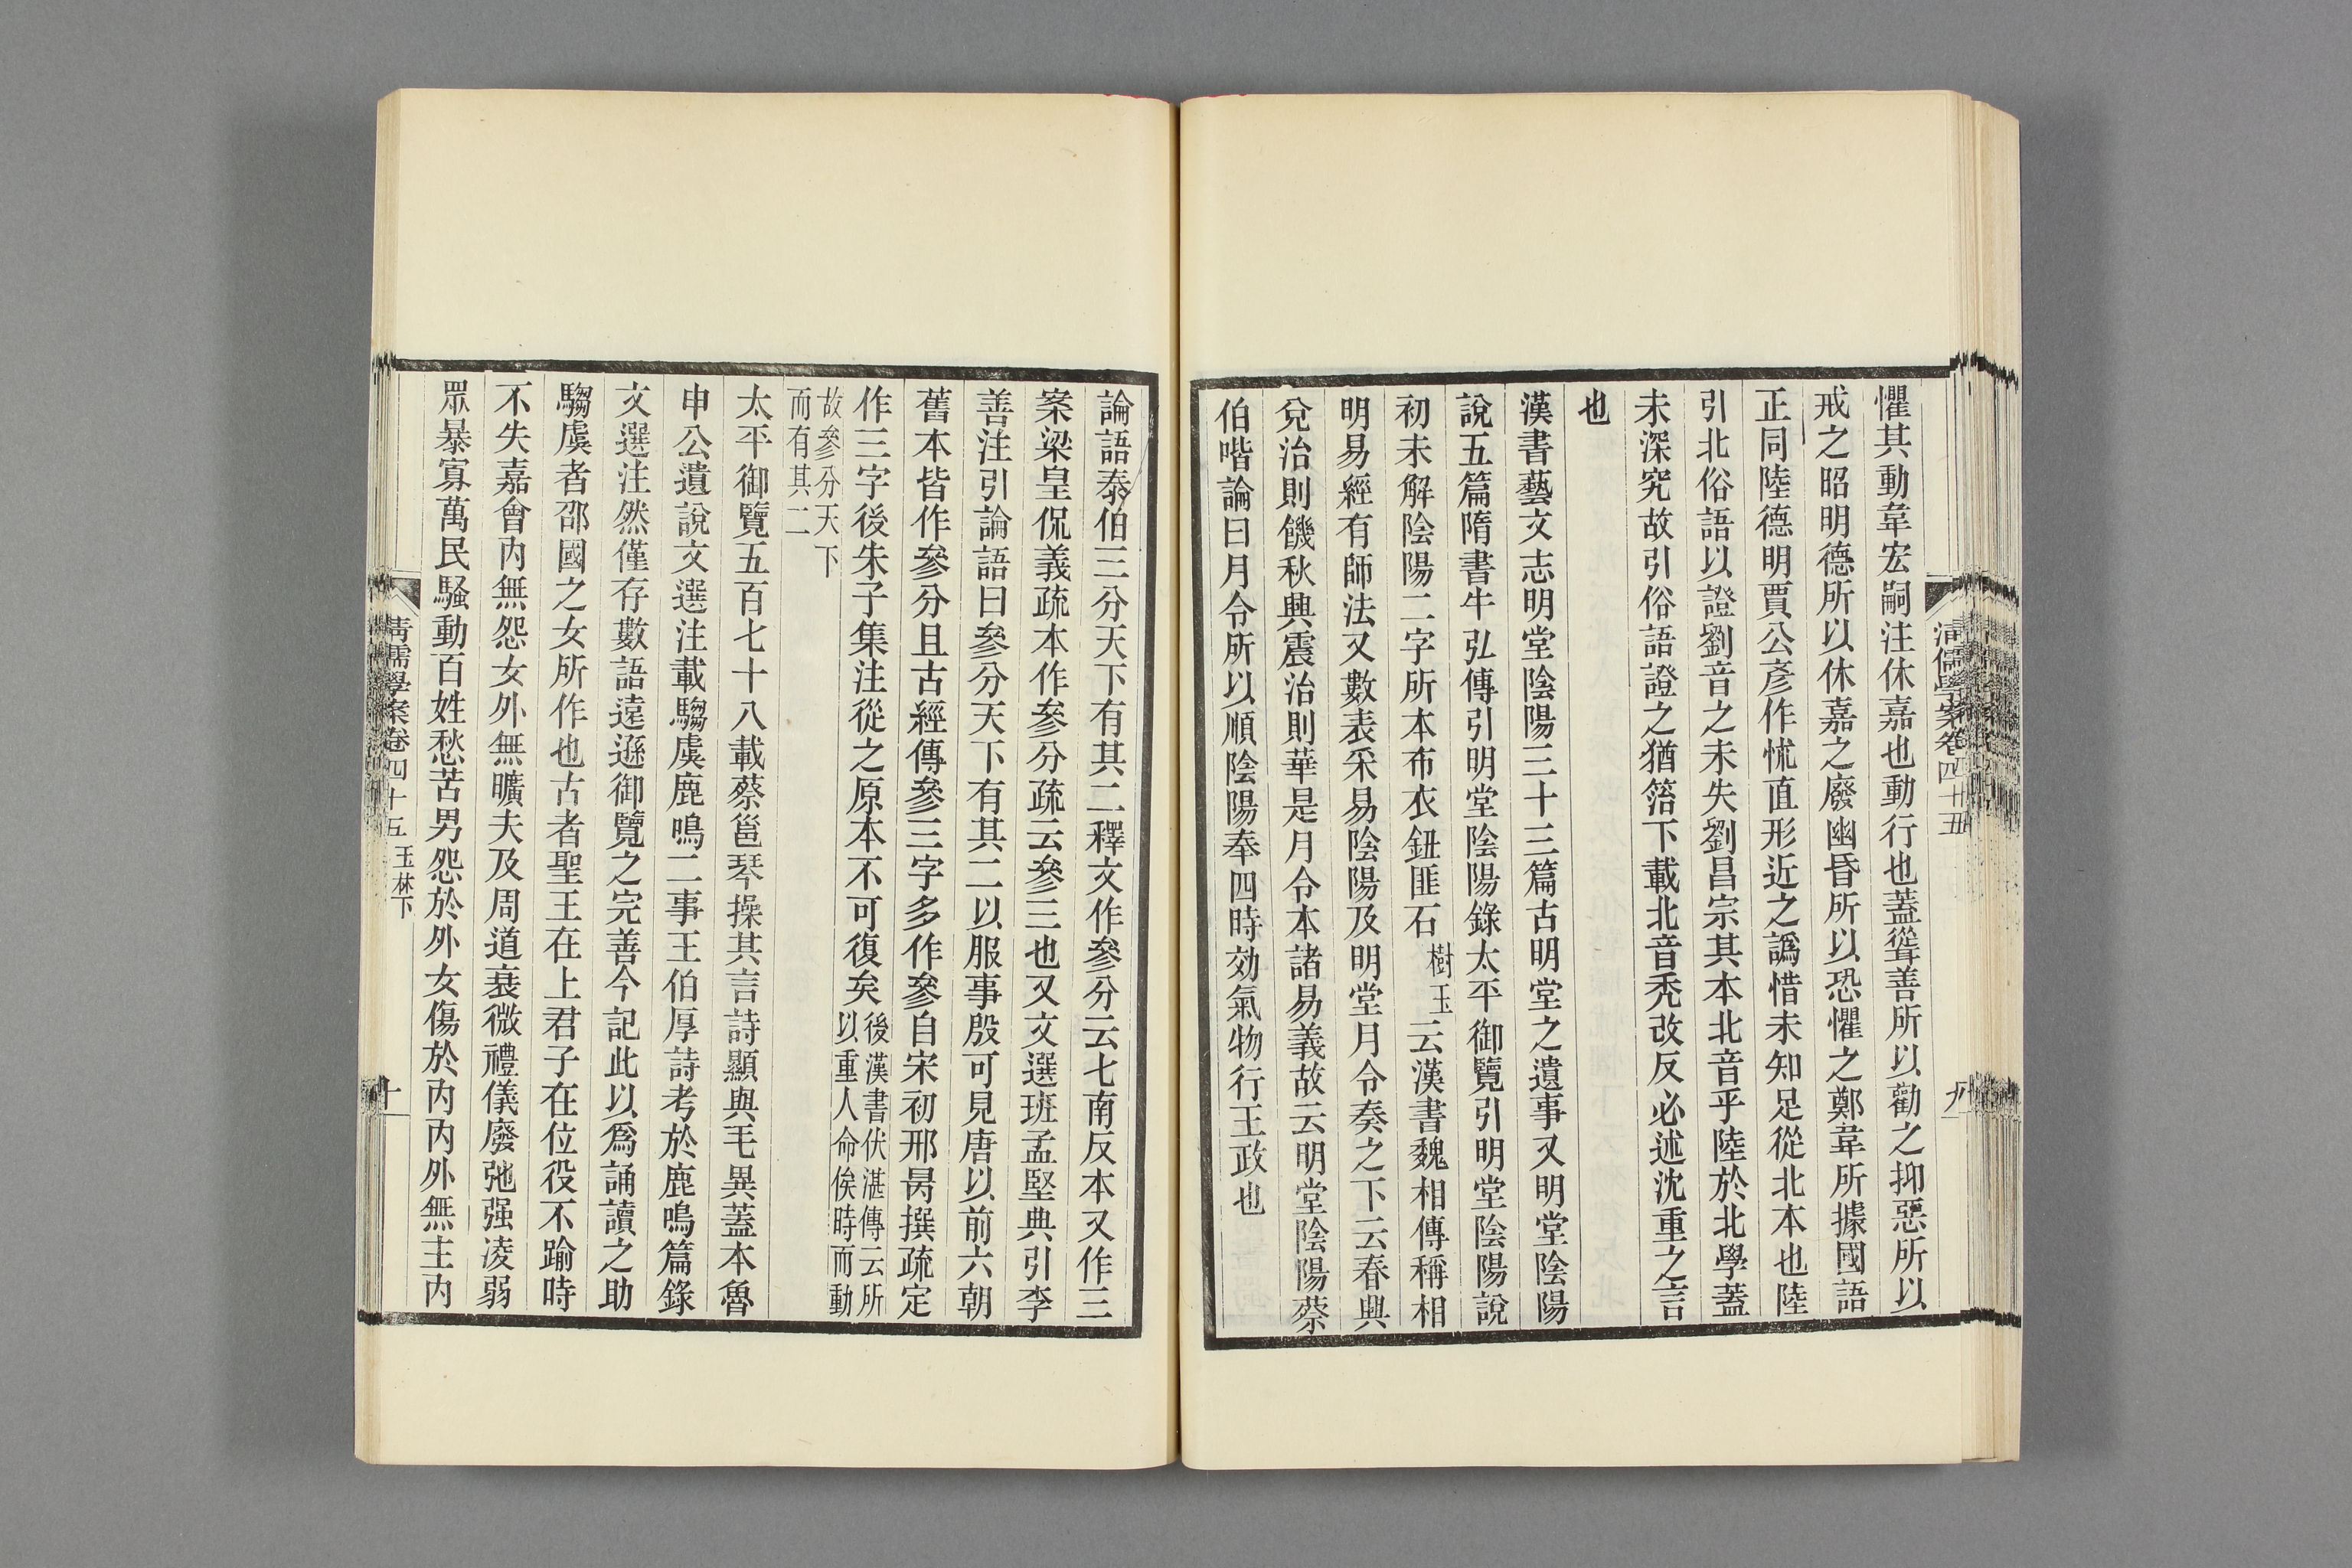 懼其動韋宏嗣注休嘉也動行也蓋聳善所以勸之抑惡所以
戒之昭明德所以休嘉之廢幽昏所以恐懼之鄭韋所據國語
正同陸德明賈公彥作怵直形近之譌惜未知足從北本也陸
引北俗語以證劉音之未失劉昌宗其本北音乎陸於北學蓋
未深究故引俗語證之猶箈下載北音禿改反必述沈重之言
也
漢書藝文志明堂陰陽三十三篇古明堂之遺事又明堂陰陽
說五篇隋書牛弘傳引明堂陰陽錄太平御覽引明堂陰陽說
初未解陰陽二字所本布衣鈕匪石樹玉云漢書魏相傳稱相
明易經有師法又數表采易陰陽及明堂月令奏之下云春興
兌治則饑秋興震治則華是月令本諸易義故云明堂陰陽蔡
伯喈論曰月令所以順陰陽奉四時効氣物行王政也
清儒學案卷四十五
九
論語泰伯三分天下有其二釋文作參分云七南反本又作三
案梁皇侃義疏本作參分疏云參三也又文選班孟堅典引李
善注引論語曰參分天下有其二以服事殷可見唐以前六朝
舊本皆作參分且古經傳參三字多作參自宋初邢昺撰疏定
作三字後朱子集注從之原本不可復矣後漢書伏湛傳云所
以重人命俟時而動
故參分天下
而有其二
太平御覽五百七十八載蔡邕琴操其言詩顯與毛異蓋本魯
申公遺說文選注載騶虞鹿鳴二事王伯厚詩考於鹿鳴篇錄
文選注然僅存數語遠遜御覽之完善今記此以爲誦讀之助
騶虞者邵國之女所作也古者聖王在上君子在位役不踰時
不失嘉會內無怨女外無曠夫及周道衰微禮儀廢弛强凌弱
眾暴寡萬民騷動百姓愁苦男怨於外女傷於內內外無主內
清儒學案卷四十五 玉林下
十